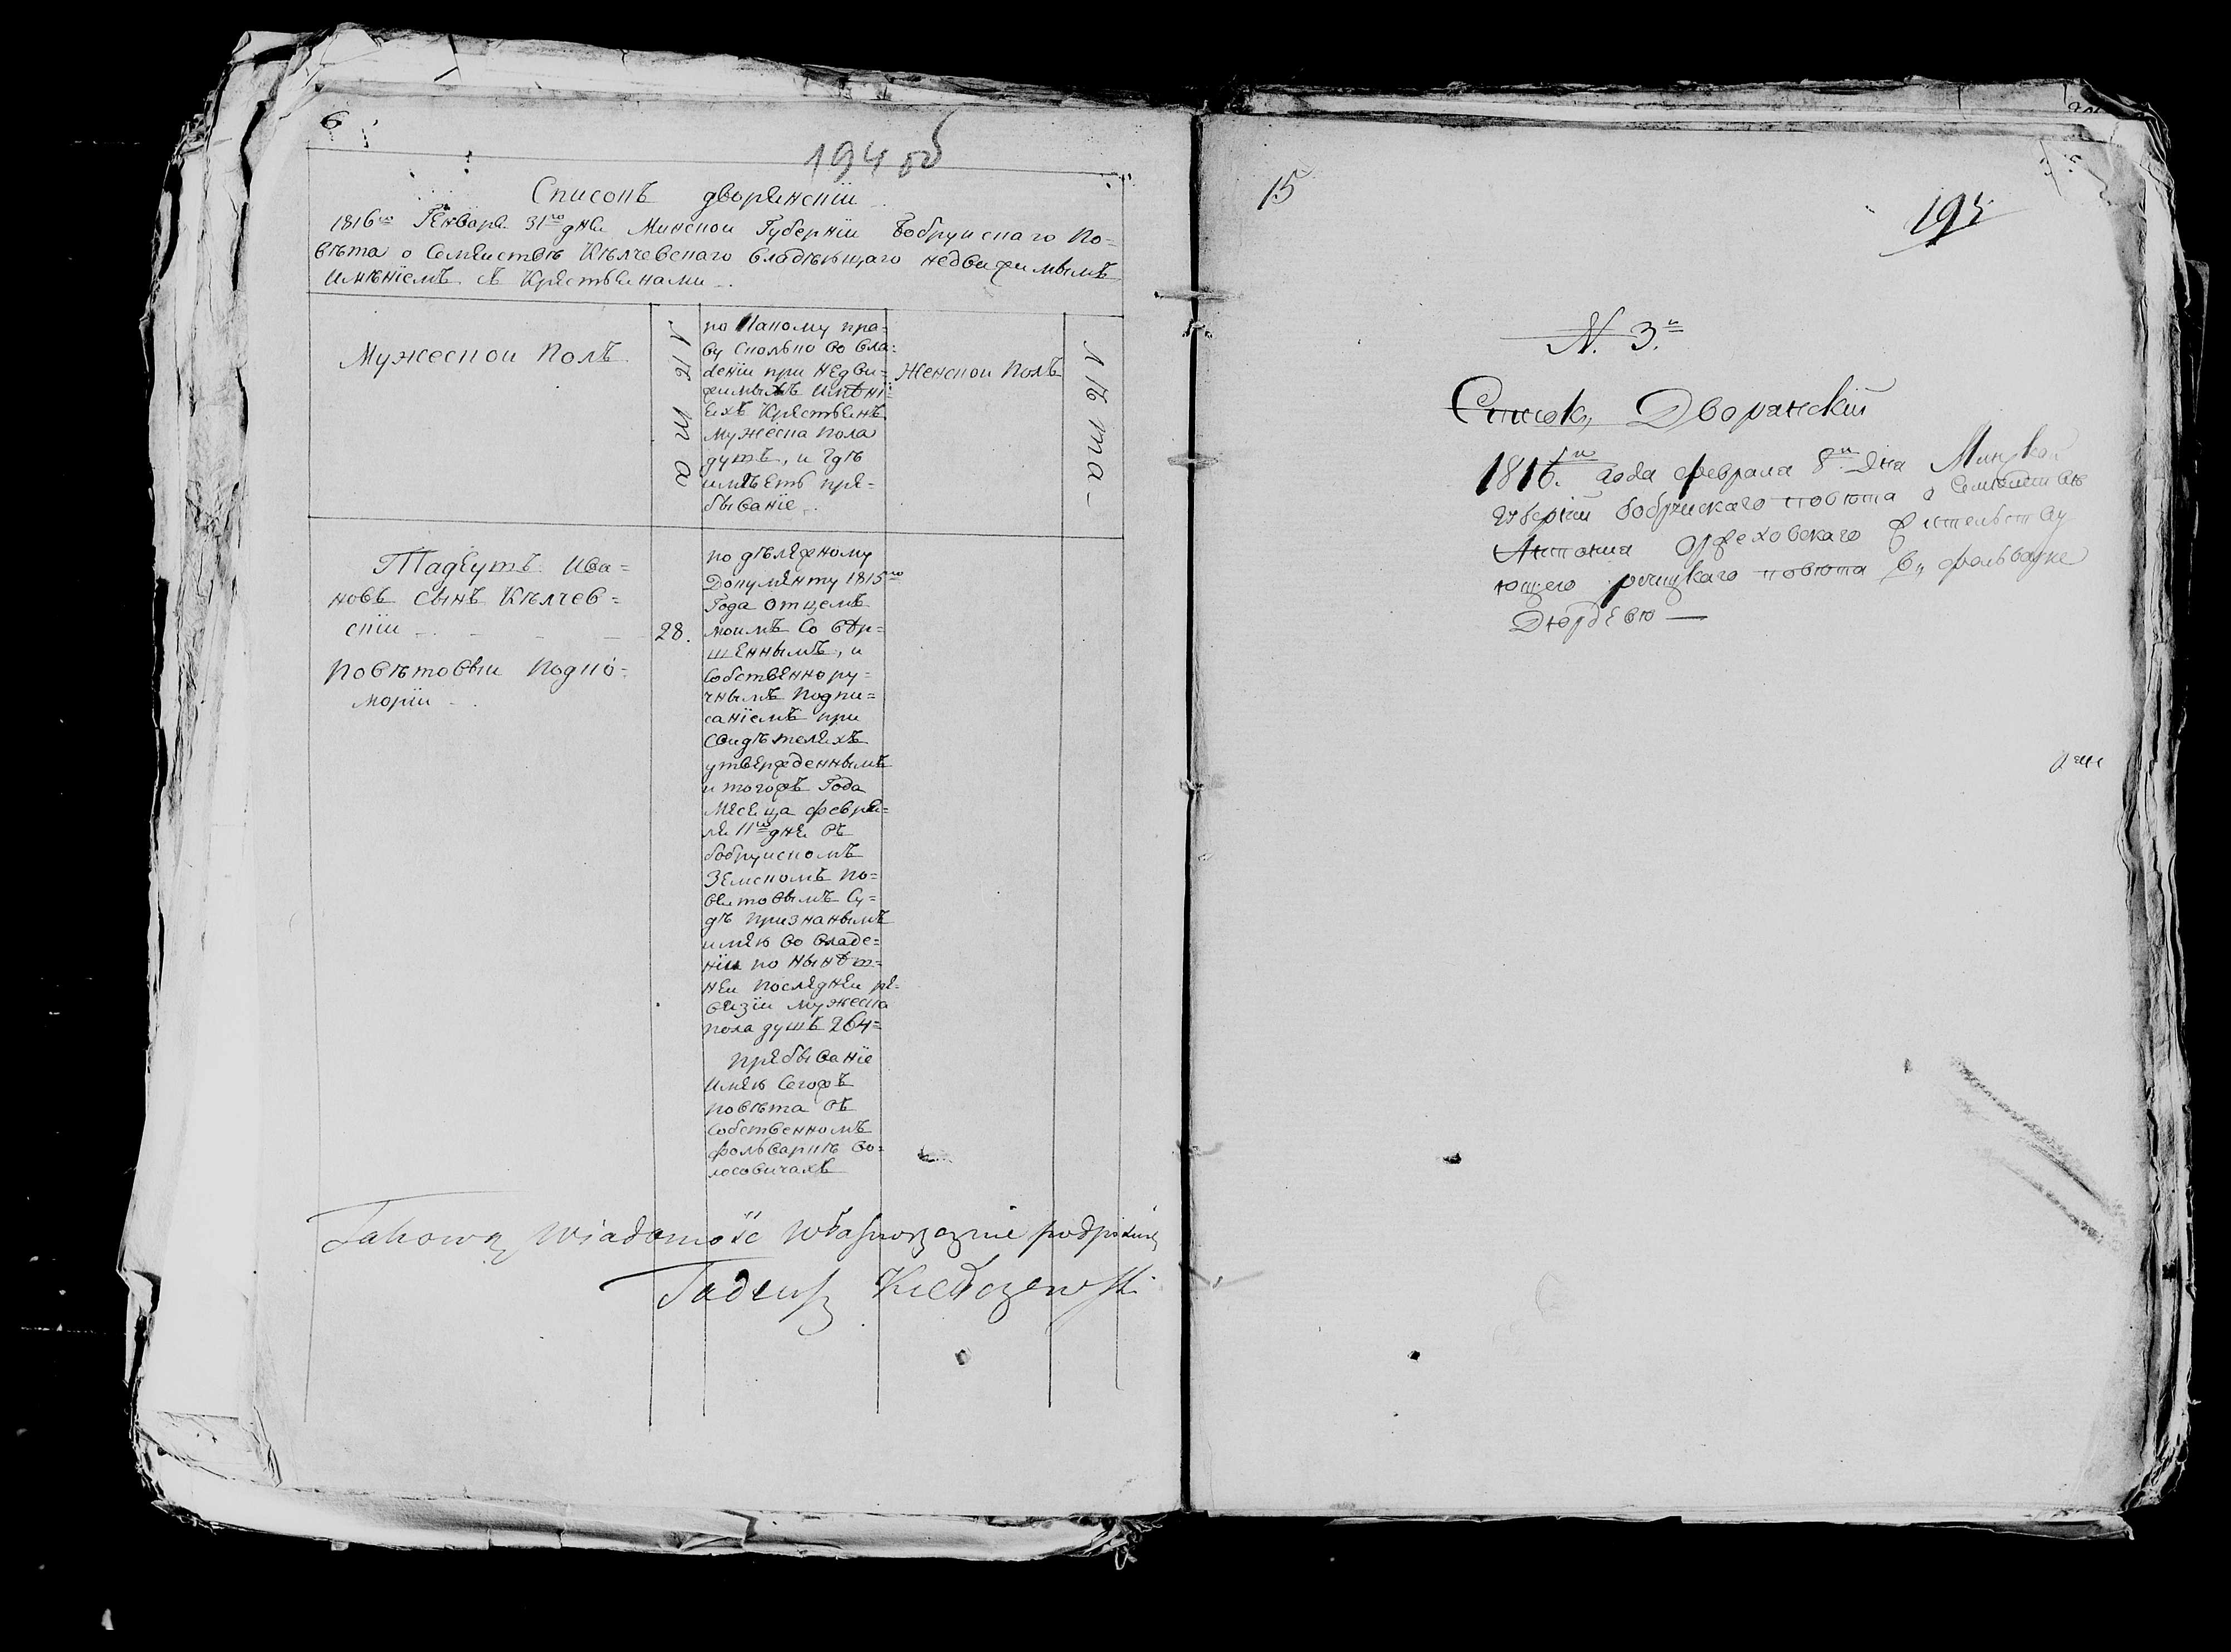 6
194 об
Списокъ дворянскiи
1816го Генваря 31го дня Минскои Губернiи Бобруискаго По=
вѣта о Семеиствѣ Кѣлчевскаго владѣющаго недвижимымъ
имѣнiемъ съ Крестьянами
Мужескои Полъ
Лѣта
по Какому пра=
ву сколько во вла=
денiи при недви=
жимыхъ имѣнi=
яхъ Крестьянъ
мужеска пола
душъ, и гдѣ
имѣетъ пре=
быванiе
Женскои Полъ
Лѣта
Тадеушъ Ива=
новъ сынъ Кѣлчев=
скiи
28.
Повѣтовыи Подко=
морiи
по дѣлежному
Документу 1815го
Года отцемъ
моимъ со вѣр=
шеннымъ, и
собственнору=
чнымъ подпи=
санiемъ при
свидѣтеляхъ
утвержденнымъ
и тогожъ Года
месяца февра=
ля 11го дня въ
бобруискомъ
Земскомъ По=
ветовымъ Су=
дѣ признанымъ
имею во владе=
нiи по нынѣш=
неи последнеи ре=
визiи мужеска
пола душъ 264=
пребыванiе
имею сегожъ
повѣта въ
собственномъ
фольваркѣ Во=
лосовичахъ
Takową wiadomość własnoręcznie podpisuię
Tadeusz Kiełczewski
15
195
N. 3й
Список, Дворанский
1816.го года февраля 8го дня Минской
губернiи бобруйскаго повѣта о Семействѣ
Антония Оржеховскаго жительству
ющего речицкаго повѣта въ фольварке
Дюрдево —